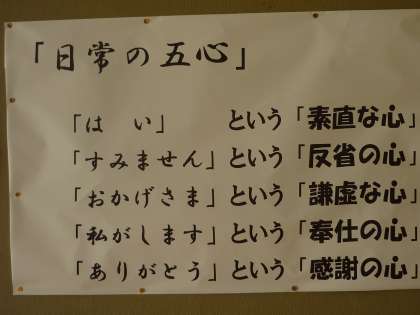 「日常の五心」
「はい」という「素直な心」
「すみません」という「反省の心」
「おかげさま」という「謙虚な心」
「私がします」という「奉仕の心」
「ありがとう」という「感謝の心」